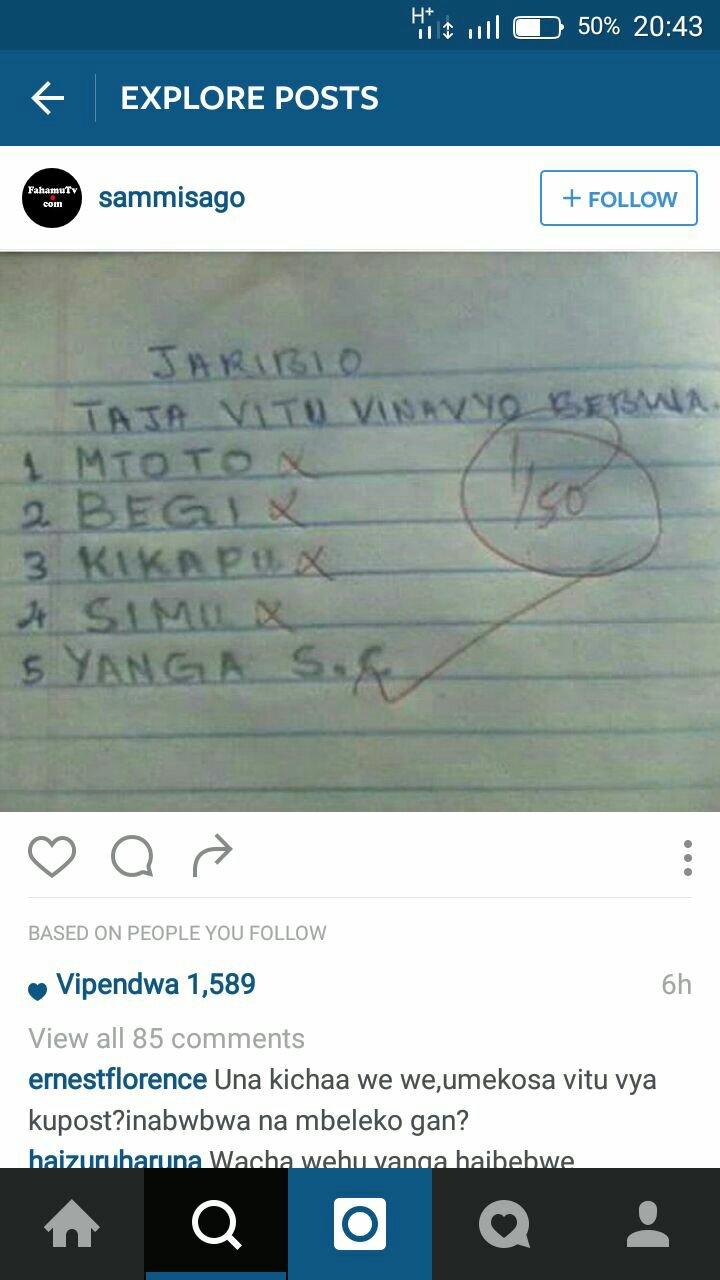 H+
50% 20:43
EXPLORE POSTS
FahamuTv
com
sammisago
+ FOLLOW
JARIBIO
TAJA VITU VINAVYO BEBWA.
1 MTOTO X
2 BEGI X
3 KIKAPU X
4 SIMU X
5 YANGA S.C
1/50
BASED ON PEOPLE YOU FOLLOW
Vipendwa 1,589
6h
View all 85 comments
ernestflorence Una kichaa we we,umekosa vitu vya
kupost?inabwbwa na mbeleko gan?
haizuruharuna Wacha wehu yanga haibebwe